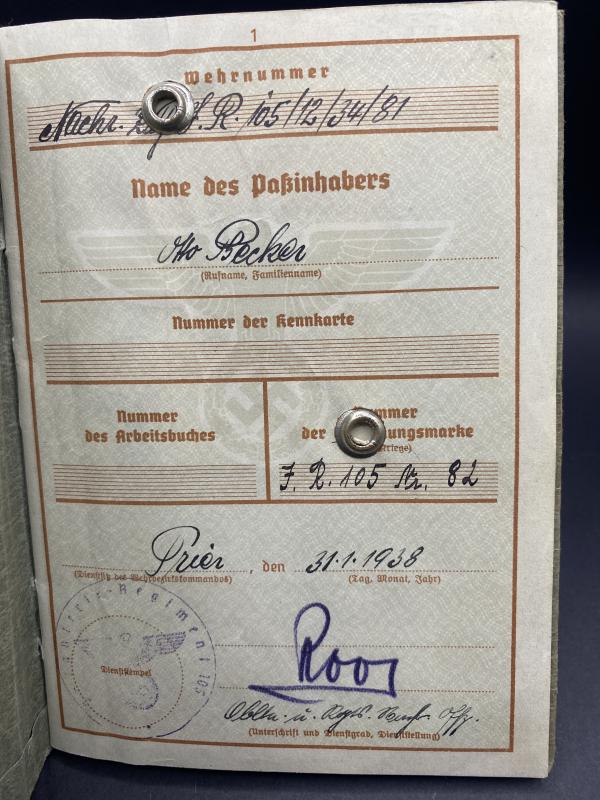 1
Wehrnummer
Nachr. J. R. 105/12/34/81
Name des Paßinhabers
Otto Becker
(Rufname, Familienname)
Nummer der Kennkarte
Nummer
des Arbeitsbuches
der
J. R. 105 Nr. 82
Trier, den 31.1.1938
(Dienstsitz des Wehrbezirkskommandos) (Tag, Monat, Jahr)
Infanterie-Regiment 105
Dienststempel
Roos
Obltn. u. Regts. Offz.
(Unterschrift und Dienstgrad, Dienststellung)